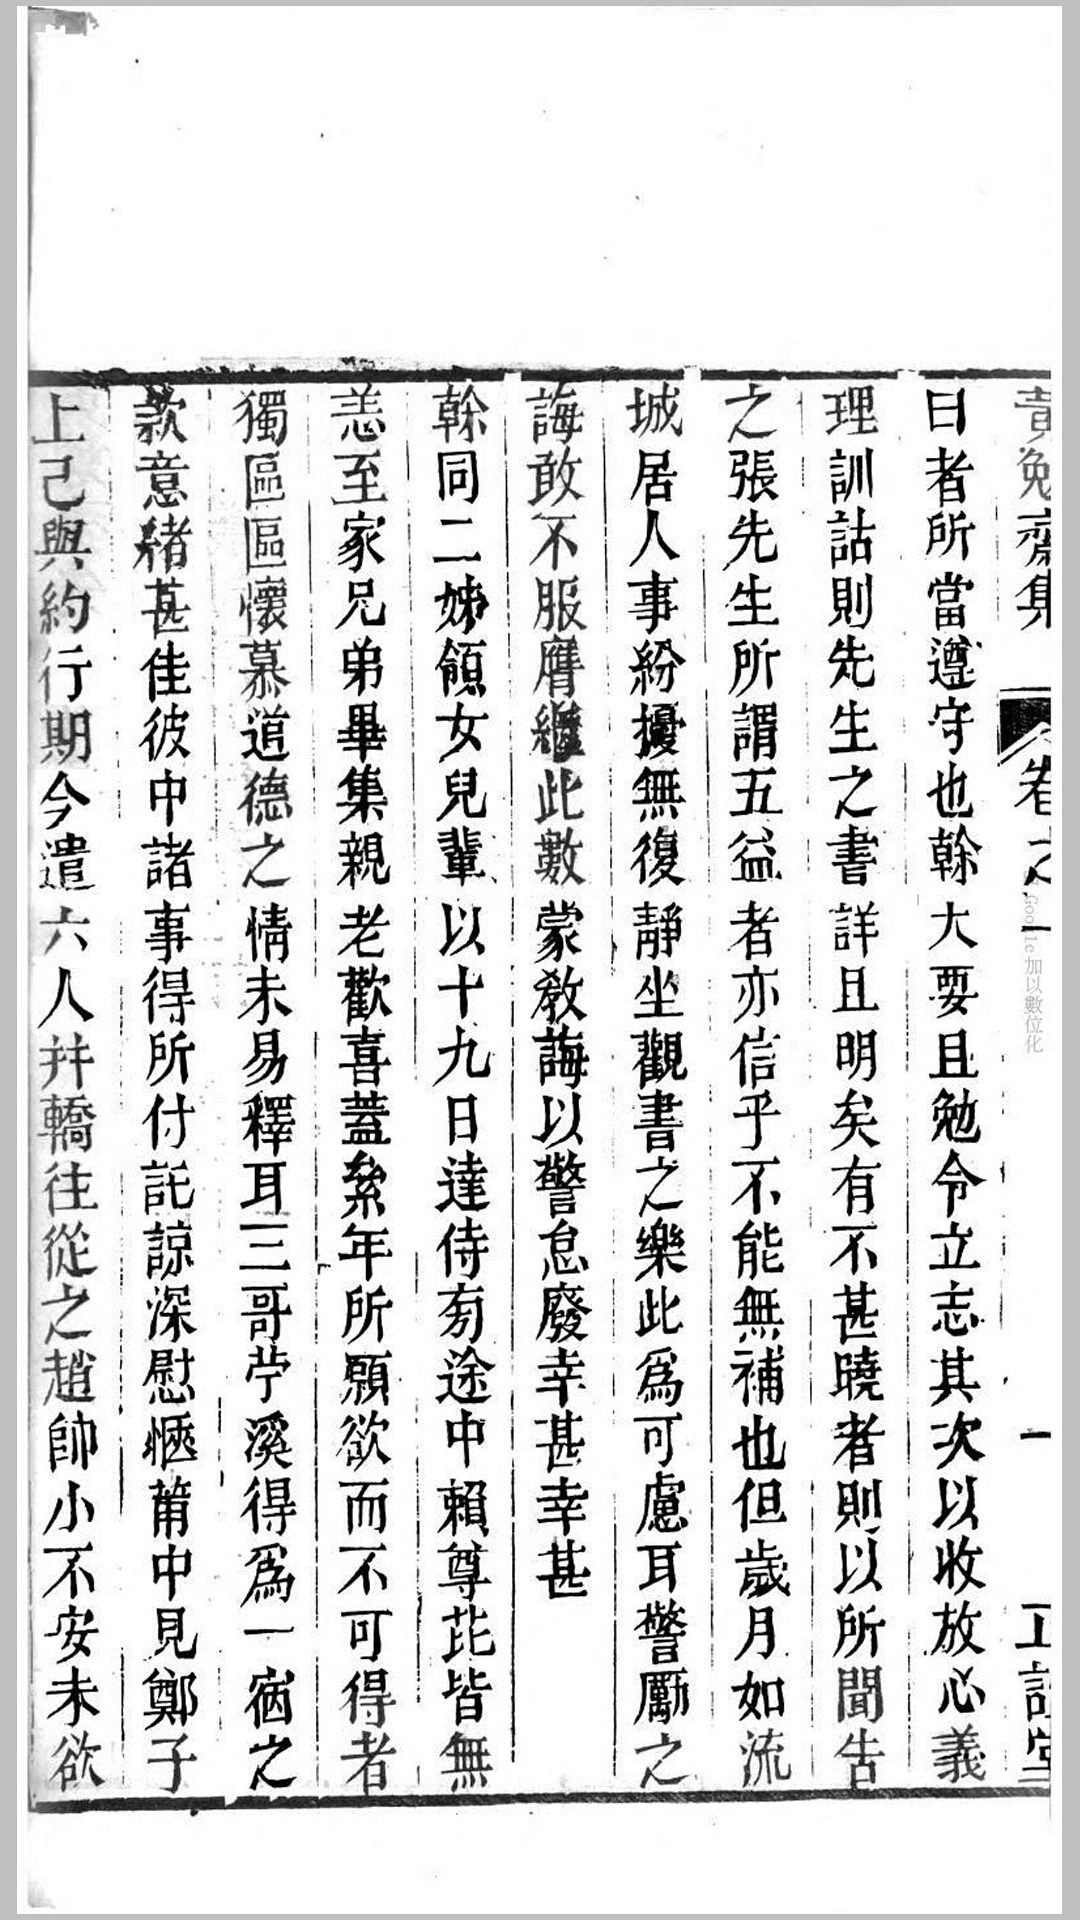 黃勉齋集
卷之一
一
正誼堂
日者所當遵守也榦大要且勉令立志其次以收放心義
理訓詁則先生之書詳且明矣有不甚曉者則以所聞告
之張先生所謂五益者亦信乎不能無補也但歲月如流
城居人事紛擾無復靜坐觀書之樂此爲可慮耳警勵之
誨敢不服膺繼此數蒙教誨以警怠廢幸甚幸甚
榦同二姊領女兒輩以十九日達侍旁途中賴尊芘皆無
恙至家兄弟畢集親老歡喜蓋纍年所願欲而不可得者
獨區區懷慕道德之情未易釋耳三哥苧溪得爲一宿之
款意緒甚佳彼中諸事得所付託諒深慰愜莆中見鄭子
上已與約行期今遣六人并轎往從之趙帥小不安未欲
Google加以數位化